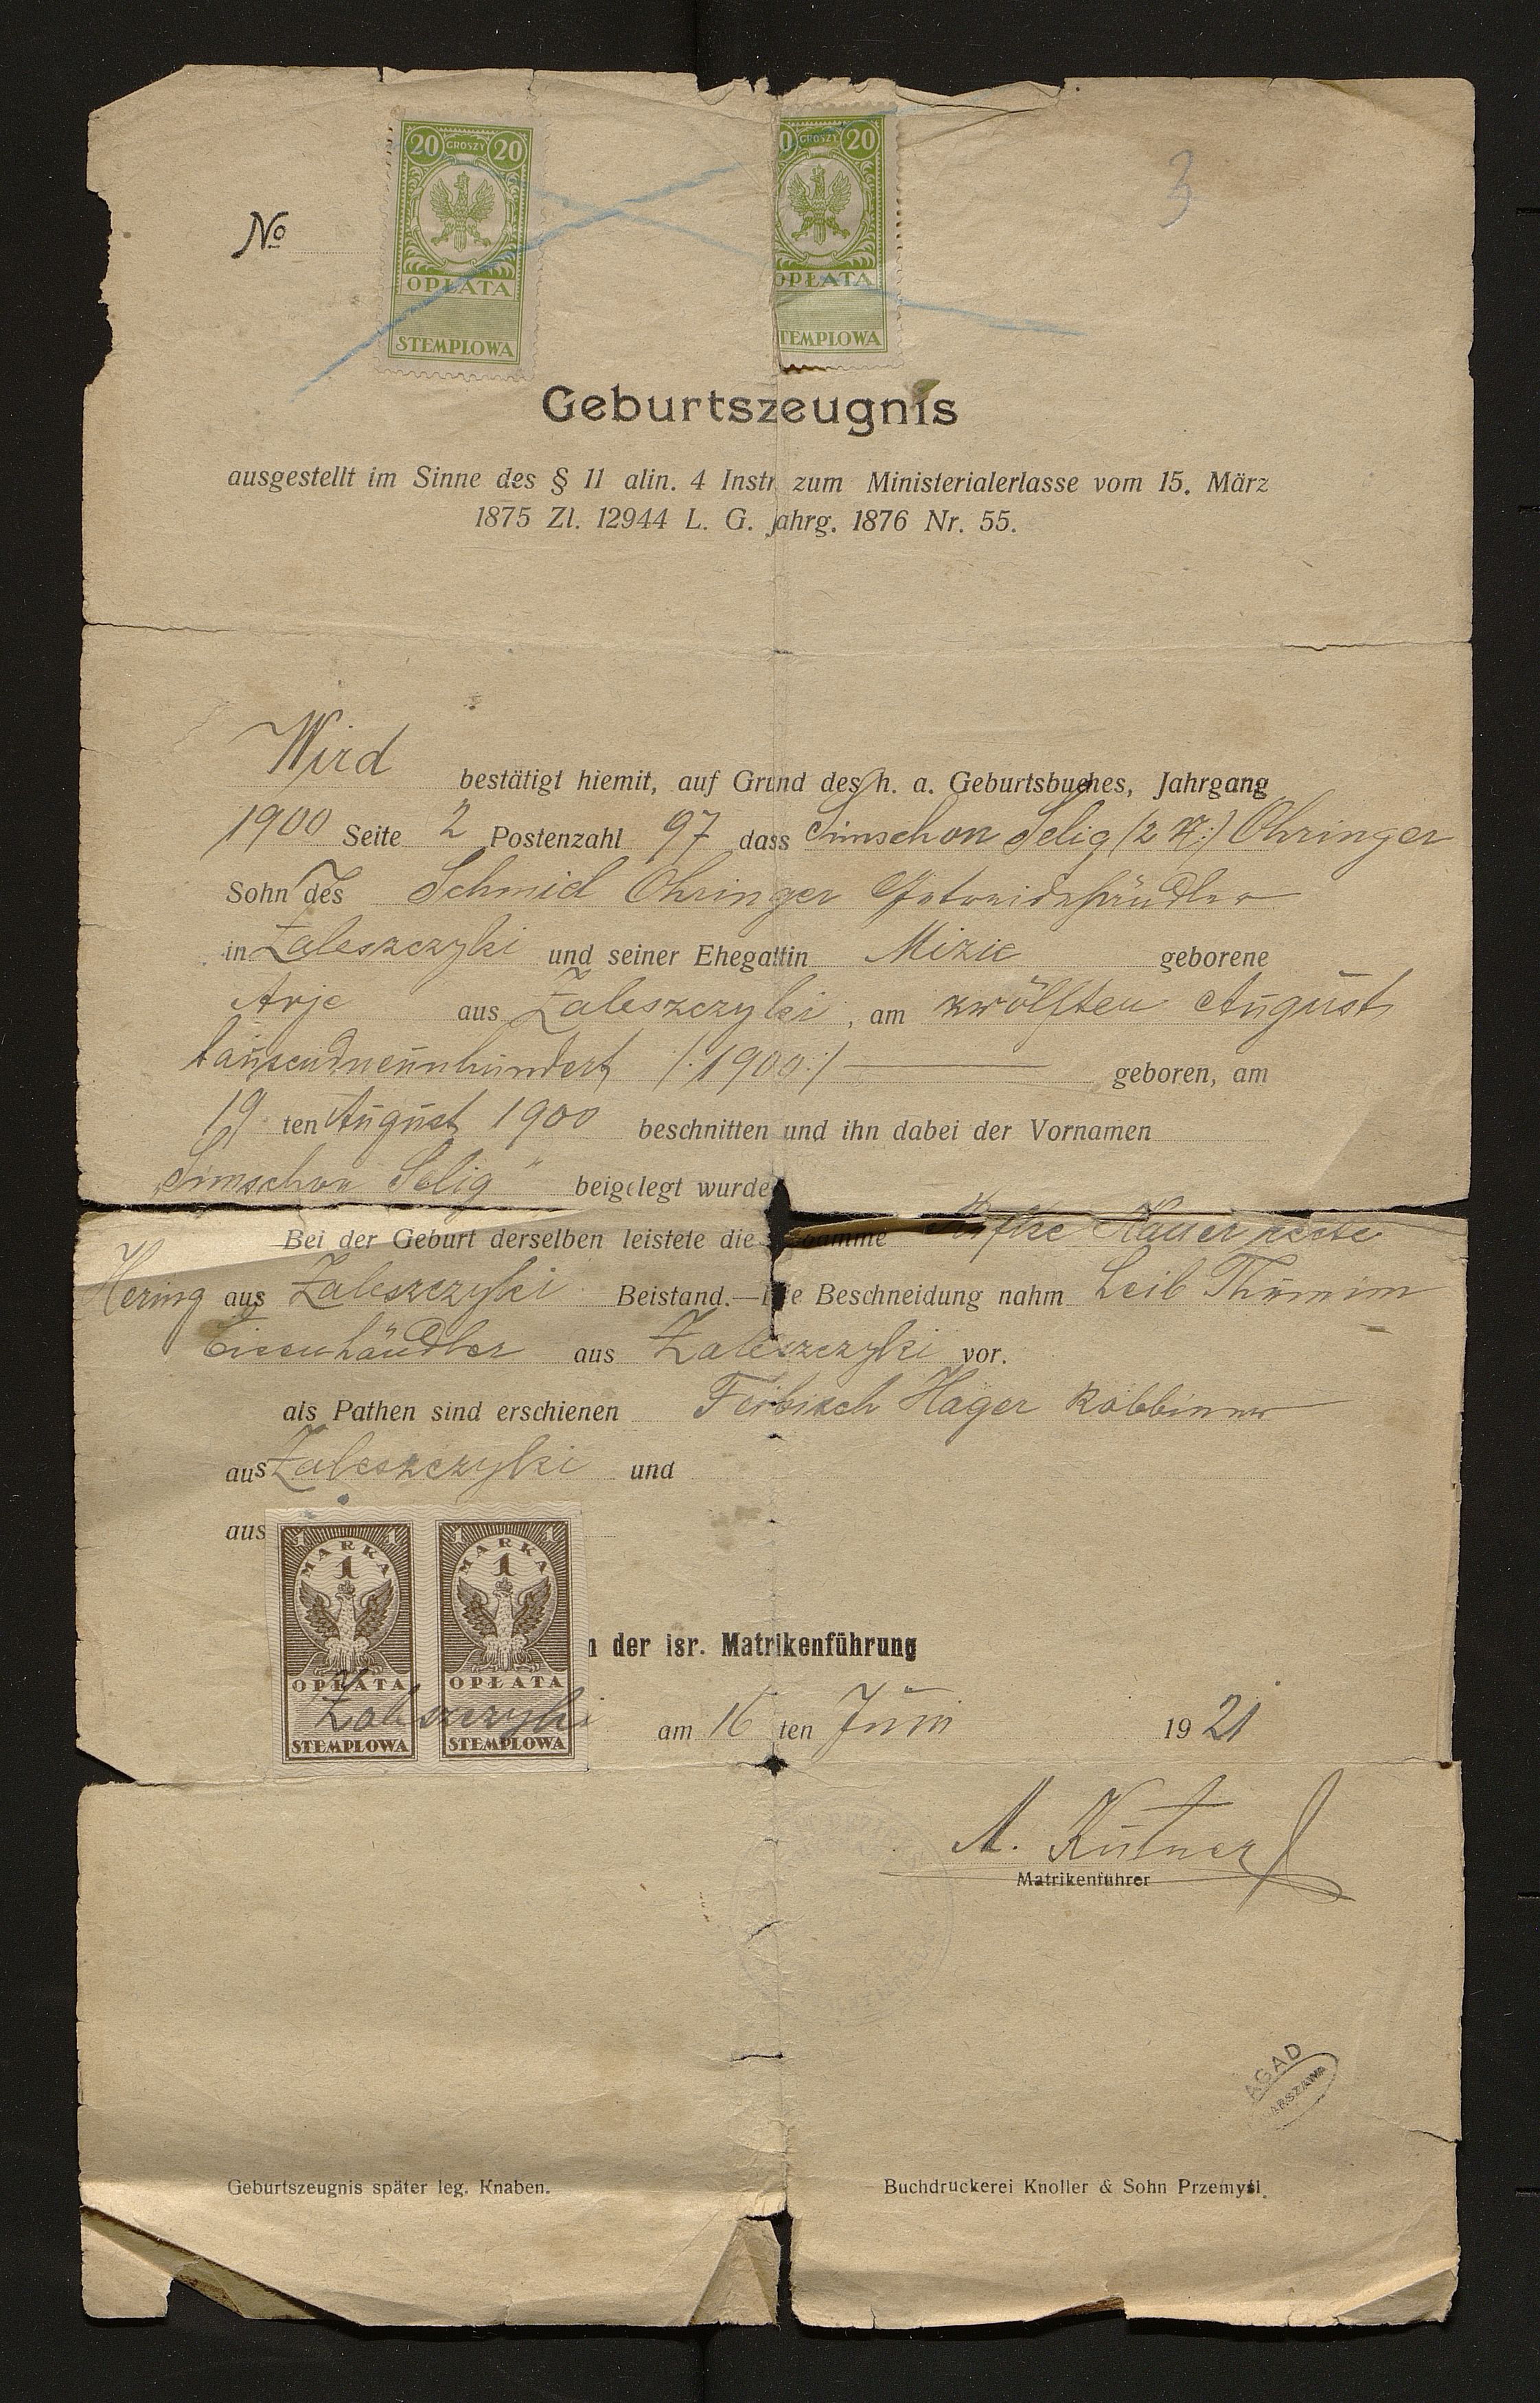 20 GROSZY 20
OPŁATA
STEMPLOWA
0 GROSZY 20
OPŁATA
TEMPLOWA
3
№
Geburtszeugnis
ausgestellt im Sinne des § 11 alin. 4 Instr zum Ministerialerlasse vom 15. März
1875 Zl. 12944 L. G. Jahrg. 1876 Nr. 55.
Wird bestätigt hiemit, auf Grund des h. a. Geburtsbuches, Jahrgang
1900 Seite 2 Postenzahl 97 dass Simschon Selig (2 N:) Ohringer
Sohn des Schmid Ohringer Getreidehändler
in Zaleszczyki und seiner Ehegattin Mizie geborene
Arje aus Zaleszczyki, am zwölften August
tausendneunhundert /:1900:/ — geboren, am
19 ten August 1900 beschnitten und ihn dabei der Vornamen
„Simschon Selig" beigelegt wurde
Bei der Geburt derselben leistete die Kauer recte
Hering aus Zaleszczyki Beistand.—Die Beschneidung nahm Leib Thumim
Eisenhändler aus Zaleszczyki vor.
als Pathen sind erschienen Feibisch Hager Rabbiner
aus Zaleszczyki und
aus
1 MARKA 1
1
OPŁATA
STEMPLOWA
1 MARKA 1
1
OPŁATA
STEMPLOWA
n der isr. Matrikenführung
Zaleszczyki am 16 ten Juni 1921
A. Kutner
Matrikenführer
AGAD
WARSZAWA
Geburtszeugnis später leg. Knaben.
Buchdruckerei Knoller & Sohn Przemyśl.